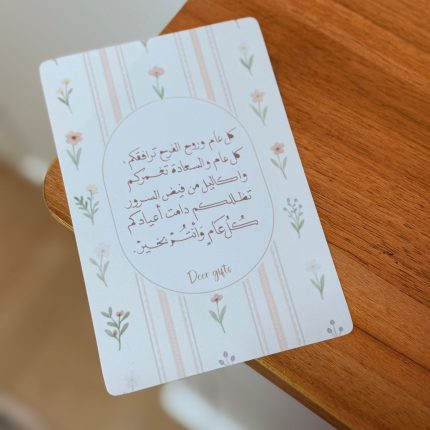 كل عام وروح الفرح ترافقكم،
كل عام والسعادة تغمركم
واكاليل من فيض السرور
تظللكم دامت أعيادكم
كُل عَام وَأنتُم بخَير.
Deer gifts